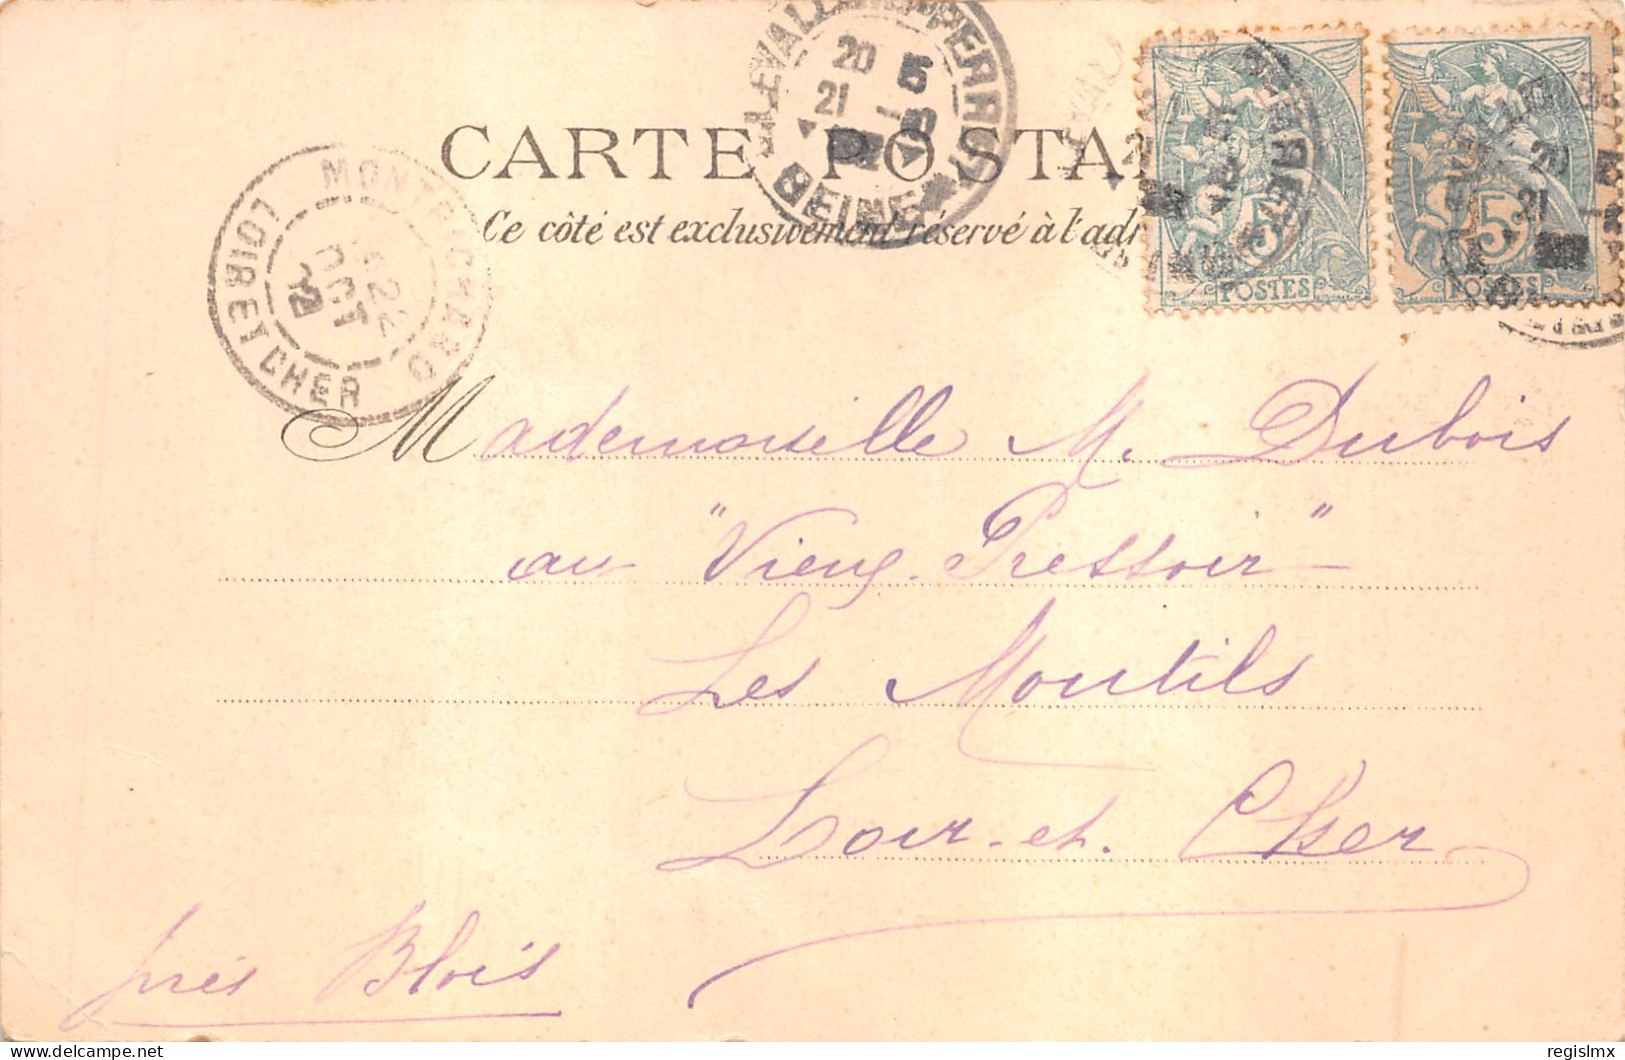 CARTE POSTA
Ce côté est exclusivement réservé à l'adr
LEVALLOIS-PERRET
20 5
21 -10
SEINE
MONTRICHARD
22
OCT
02
LOIR ET CHER
5
POSTES
5
POSTES
20
21
Mademoiselle M. Dubois
au "Vieux Pressoir"
Les Montils
Loir-et-Cher
près Blois
regislmx